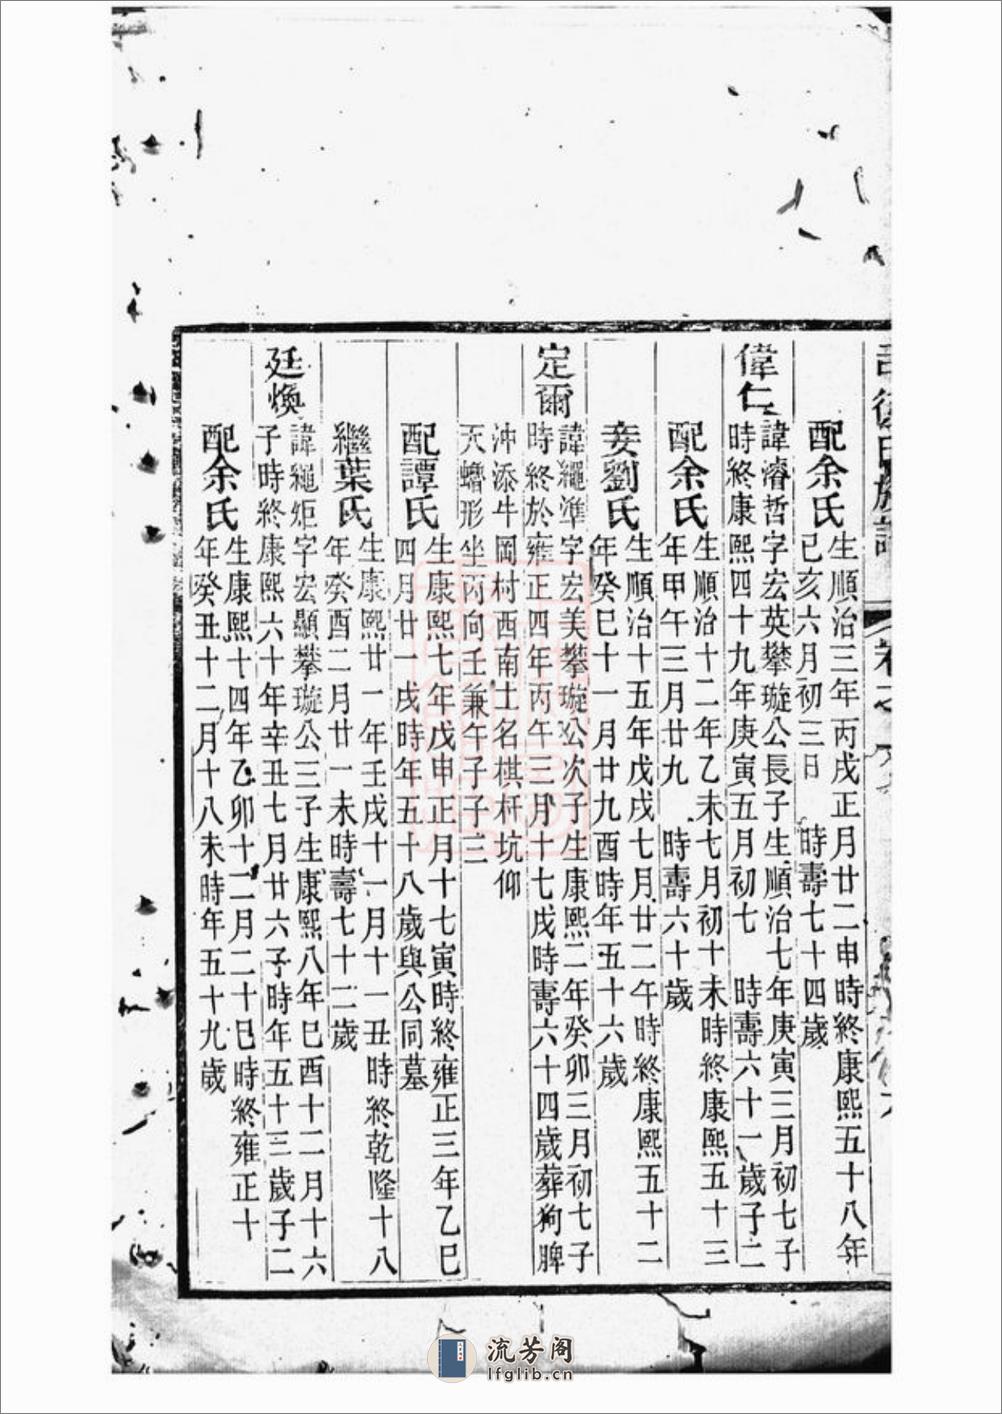 配余氏
生順治三年丙戌正月廿二申時終康熙五十八年
己亥六月初三日　時壽七十四歲
偉仁
諱濬哲字宏英攀璇公長子生順治七年庚寅三月初七子
時終康熙四十九年庚寅五月初七　時壽六十一歲子二
配余氏
生順治十二年乙未七月初十未時終康熙五十三
年甲午三月廿九　時壽六十歲
妾劉氏
生順治十五年戊戌七月廿二午時終康熙五十二
年癸巳十一月廿九酉時年五十六歲
定爾
諱繩準字宏美攀璇公次子生康熙二年癸卯三月初七子
時終於雍正四年丙午三月十七戌時壽六十四歲葬狗脾
沖添牛岡村西南土名棋杆坑仰
天蠄形坐丙向壬兼午子子三
配譚氏
生康熙七年戊申正月十七寅時終雍正三年乙巳
四月廿一戌時年五十八歲與公同墓
繼葉氏
生康熙廿一年壬戌十一月十一丑時終乾隆十八
年癸酉二月廿一未時壽七十二歲
廷煥
諱繩矩字宏顯攀璇公三子生康熙八年巳酉十二月十六
子時終康熙六十年辛丑七月廿六子時年五十三歲子二
配余氏
生康熙十四年乙卯十二月二十巳時終雍正十
年癸丑十二月十八未時年五十九歲
流芳阁
lfglib.cn